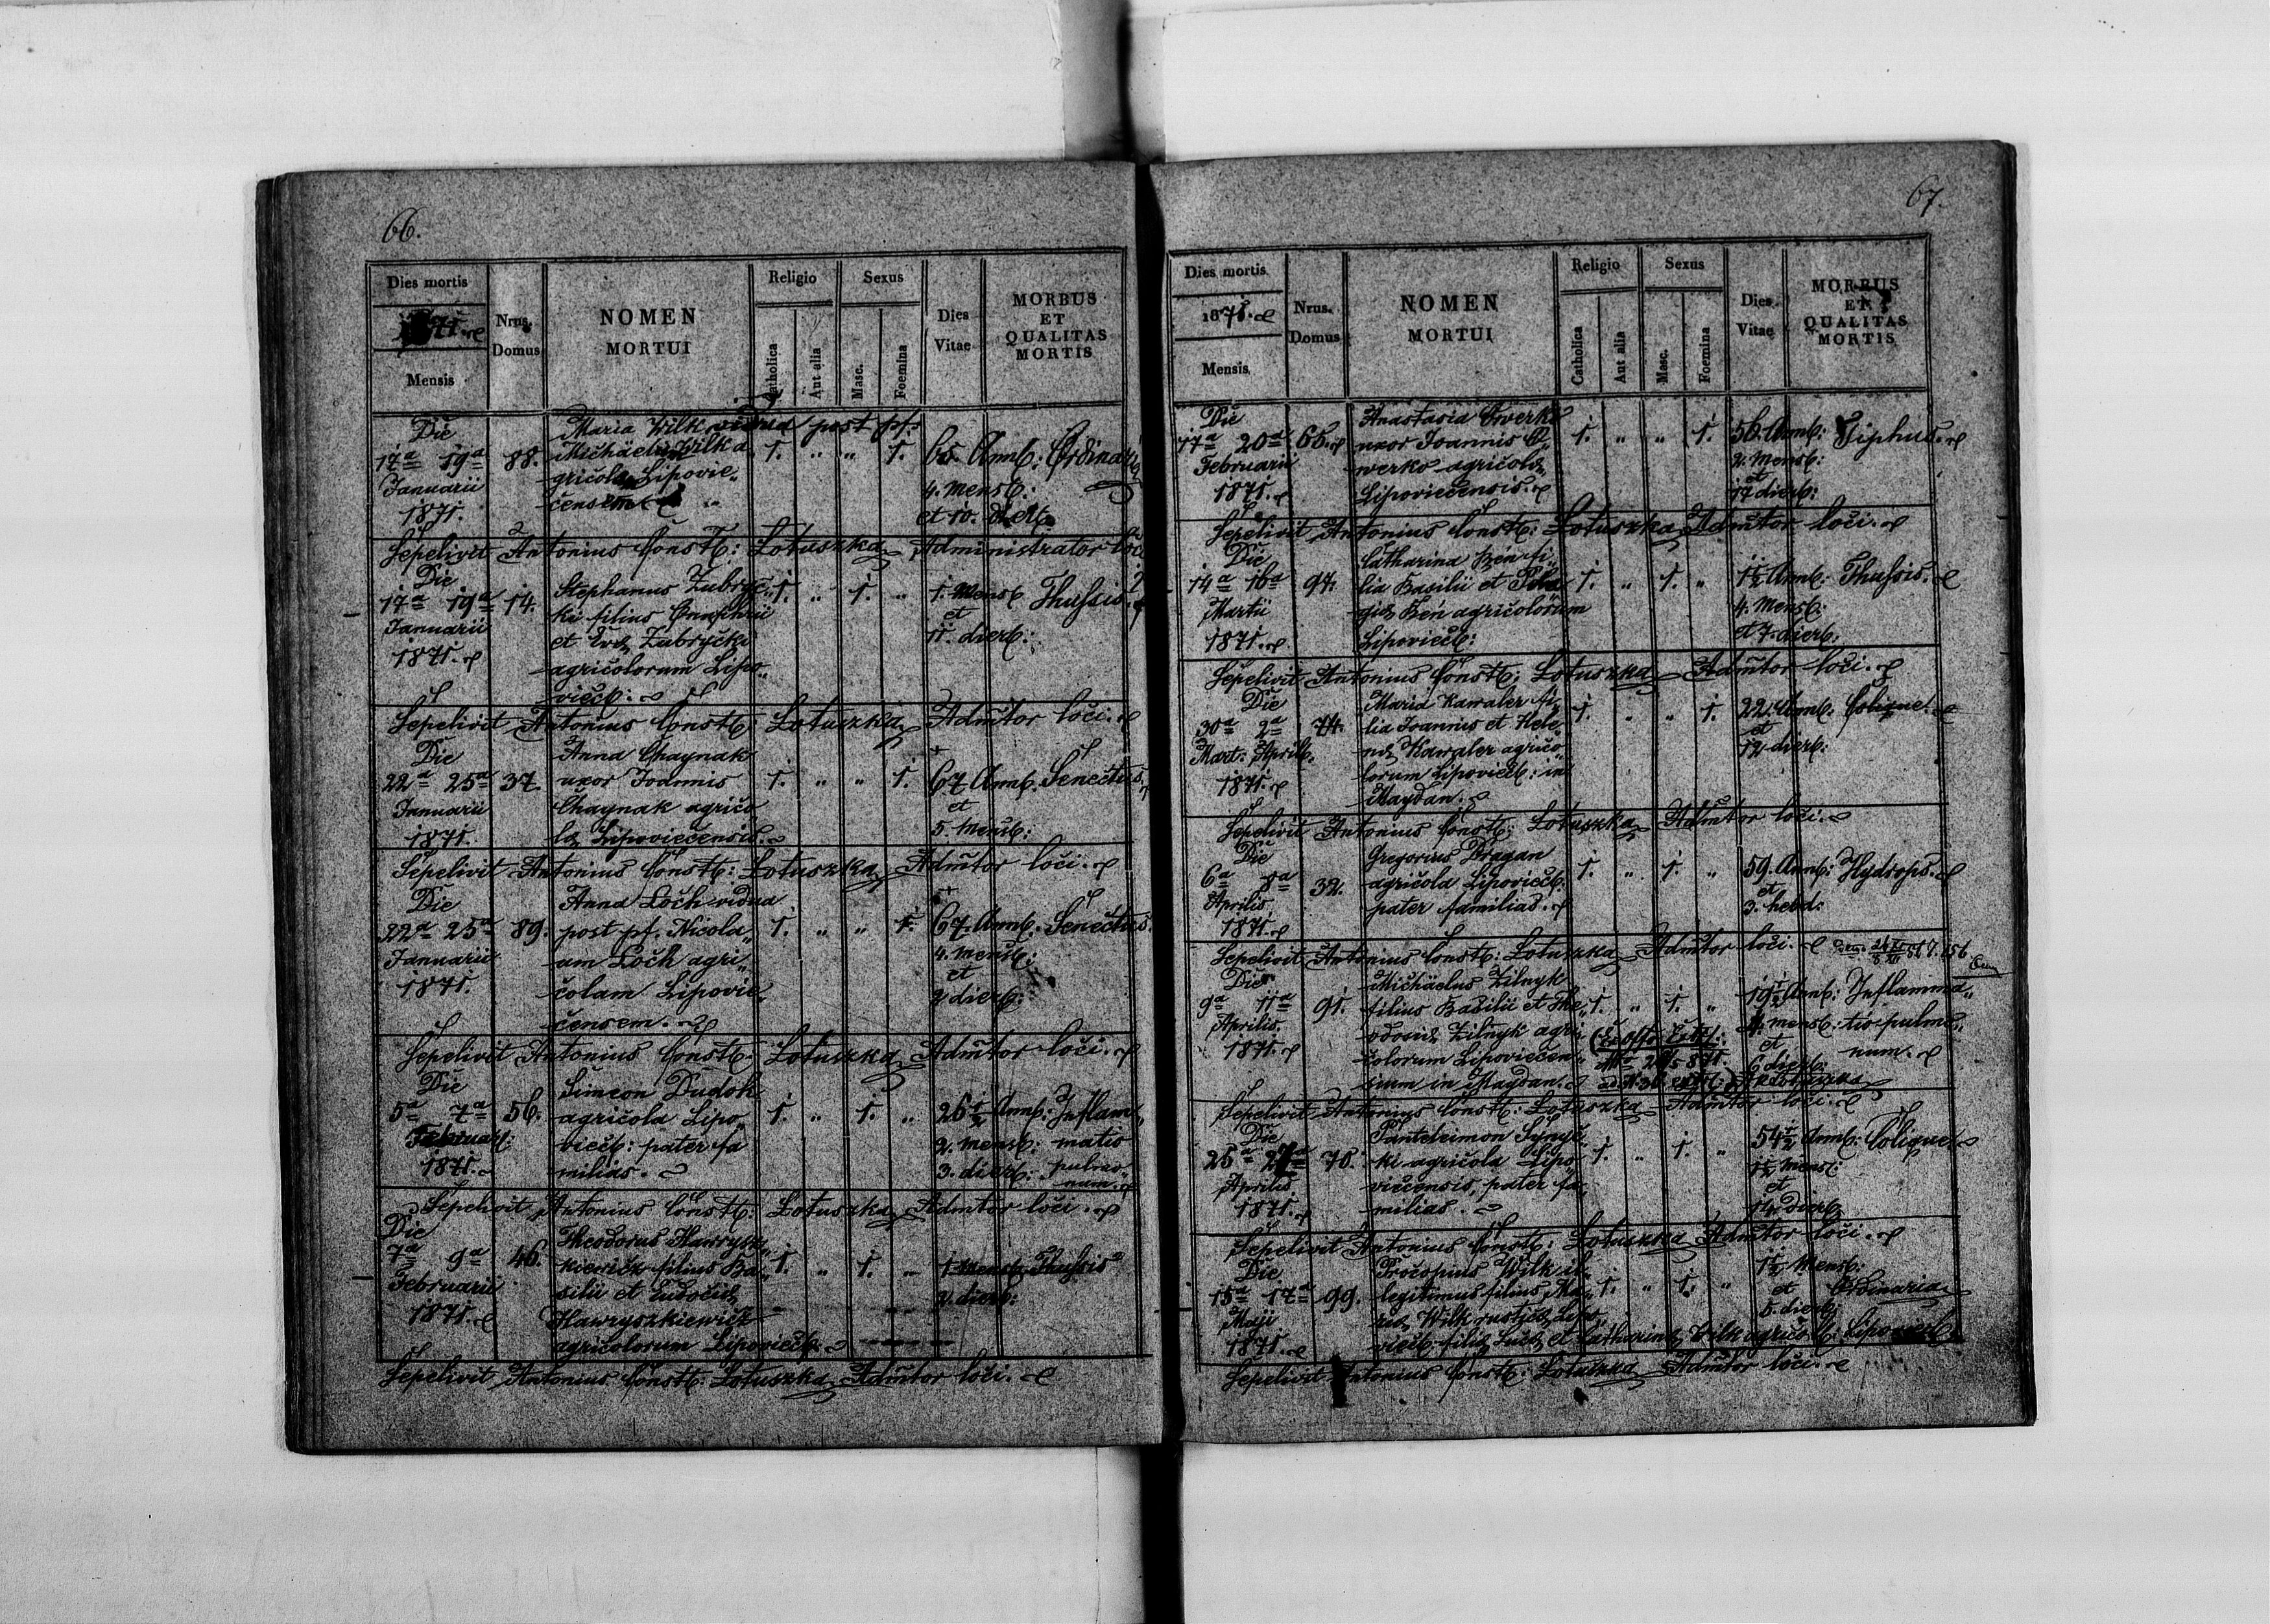 66.
Dies mortis
1871.
Mensis
Nrus. Domus
NOMEN
MORTUI
Religio
Catholica
Aut alia
Sexus
Masc.
Foemina
Dies
Vitae
MORBUS
ET
QUALITAS
MORTIS
Die
17a 19a
Januarii
1871.
88.
Maria Wilk vidua post pf:
Michäelem Wilk a
gricolam Lipovie„
censem
1. „ „ 1.
65. Annb: Ordinaria
4. mensb:
et 10. dieb:
Sepelivit Antonius Constt: Lotuszka Administrator loci
Die
17a 19a
Januarii
1871.
14.
Stephanus Zubryc„
ki filius Onuphrii
et Evæ Zubrycki
agricolorum Lipo„
viecb:
1. „ 1. „
1. Mens
et
11. dierb:
Thussis.
Sepelivit Antonius Constt: Lotuszka Admtor loci.
Die
22a 25a
Januarii
1871.
37.
Anna Chaynak
uxor Joannis
Chaynak agrico
læ Lipoviecensis.
1. „ „ 1.
67 Annb.
et
5. mensb:
Senectus.
Sepelivit Antonius Constt: Lotuszka Admtor loci.
Die
22a 25a
Januarii
1871.
89.
Anna Loch vidua
post pf. Nicola„
um Loch agri„
colam Lipovie„
censem.
1. „ „ 1.
67. Annb.
4. mensb:
et
2 dierb:
Senectus.
Sepelivit Antonius Constt: Lotuszka Admtor loci.
Die
5a 7a
Februar:
1871.
56.
Simeon Dudok
agricola Lipo„
viecb: pater fa
milias.
1. „ 1. „
26½ Annb:
2. mensb:
3. dierb:
Inflam„
matio
pulmo„
num.
Sepelivit Antonius Constt: Lotuszka Admtor loci.
Die
7a 9a
Februarii
1871.
46.
Theodorus Hawrysz„
kiewicz filius Ba„
silii et Eudociæ
Hawryszkiewicz
agricolorum Lipoviecb.
1. „ 1. „
1 Mensb
2. dierb:
Thussis
Sepelivit Antonius Constt: Lotuszka Admtor loci.
67.
Dies mortis
1871.
Mensis
Nrus. Domus
NOMEN
MORTUI
Religio
Catholica
Aut alia
Sexus
Masc.
Foemina
Dies
Vitae
MORBUS
ET
QUALITAS
MORTIS
Die
17a 20a
Februarii
1871.
66.
Anastasia Owerko
uxor Joannis O„
werko agricolæ
Lipoviecensis.
1. „ „ 1.
56. Annb:
2. mensb:
et
17 dierb:
Tiphus.
Sepelivit Antonius Constt: Lotuszka Admtor loci.
Die
14a 16a
Martii
1871.
94.
Catharina Ben fi„
lia Basilii et Pela
giæ Ben agricolorum
Lipoviecb:
1. „ 1. „
1½ Annb:
4. Mensb:
et 7. dierb:
Thussis.
Sepelivit Antonius Constt: Lotuszka Admtor loci.
Die
30a 2a
Mart: Aprilb.
1871.
74.
Maria Kawaler fi„
lia Joannis et Hele„
næ Kawaler agrico„
lorum Lipoviecb: in
Maydan.
1. „ „ 1.
22. Annb.
et
12 dierb:
Colique.
Sepelivit Antonius Constt: Lotuszka Admtor loci.
Die
6a 8a
Aprilis
1871.
32.
Gregorius Dragan
agricola Lipoviecb.
pater familias.
1. „ 1. „
59. Annb:
et
3. hebd:
Hydrops.
Sepelivit Antonius Constt: Lotuszka Admtor loci.
Die
9a 11a
Aprilis
1871.
91.
Michäelus Zilnyk
filius Basilii et The„
odosiæ Zilnyk agri
colorum Lipoviecen„
sium in Maydan.
1. „ 1. „
19½ Annb:
4. mensb:
et
6 dierb:
Inflamma„
tio pulmo„
num.
Sepelivit Antonius Constt: Lotuszka Admtor loci.
Die
25a 27a
Aprilis
1871.
76.
Panteleimon Synyc„
ki agricola Lipo„
viecensis, pater fa„
milias.
1. „ 1. „
54½ Annb:
et
Colique.
Sepelivit Antonius Constt: Lotuszka Admtor loci.
Die
15a 17a
Maji
1871.
99.
Procopius Wilk il„
legitimus filius Ma„
riæ Wilk rusticæ Lipo„
viecb. filiæ Lucæ et Catharinæ Wilk agricolb. Lipoviecb.
1. „ 1. „
1½ Mensb:
et
5. dierb:
Ordinaria
Sepelivit Antonius Constt: Lotuszka Admtor loci.